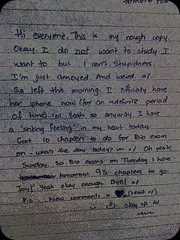 Hi everyone, This is my rough copy.
Okay. I do not want to study. I
want to but I can't. Stupidness.
I'm just annoyed And weird. :/
So left this morning. I officially have
her iphone now (for an indefinite period
of time) :m Yeah so anyway. I have
a 'sinking feeling' in my heart today.
Got 10 chapters to do for Bio exam
on - what the day today? Oh yeah
Sunday. So Bio exams on Tuesday. I have
tomorrow. 9½ chapters to go.
Joy! Yeah okay enough. Bye! :/
P.S: New comments = (heart of)
okay sp. N